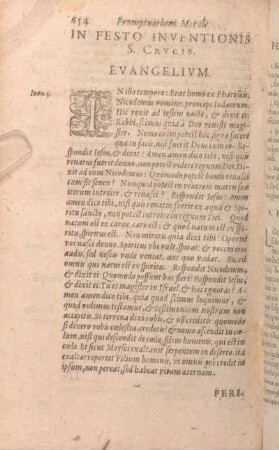 654 Promptuarium Morale
IN FESTO INVENTIONIS
S. CRVCIS.
EVANGELIVM.
Ioan. 3. IN illo tempore: Erat homo ex Pharisæis,
Nicodemus nomine, princeps Iudæorum.
Hic venit ad Iesum nocte, & dixit ei:
Rabbi, scimus quia à Deo venisti magi-
ster. Nemo enim potest hæc signa facere
quæ tu facis, nisi fuerit Deus cum eo. Re-
spondit Iesus, & dixit: Amen amen dico tibi, nisi quis
renatus fuerit denuo, non potest videre regnum Dei. Dixit
ad eum Nicodemus: Quomodo potest homo renasci
cum sit senex? Nunquid potest in ventrem matris suæ
iterum introire, & renasci? Respondit Iesus: Amen
amen dico tibi, nisi quis renatus fuerit ex aqua & Spi-
ritu sancto, non potest introire in regnum Dei. Quod
natum est ex carne, caro est: & quod natum est ex spi-
ritu, spiritus est. Non mireris quia dixi tibi: Oportet
vos nasci denuo. Spiritus vbi vult, spirat: & vocem eius
audis, sed nescis vnde veniat, aut quo vadat. Sic est
omnis qui natus est ex spiritu. Respondit Nicodemus,
& dixit ei: Quomodo possunt hæc fieri? Respondit Iesus,
& dixit ei: Tu es magister in Israel, & hæc ignoras? A-
men amen dico tibi, quia quod scimus loquimur, &
quod vidimus testamur, & testimonium nostrum non
accipitis. Si terrena dixi vobis, & nō creditis: quomodo
si dixero vobis cœlestia, credetis? & nemo ascendit in cœ-
lum, nisi qui descendit de cœlo, filius hominis, qui est in
cœlo. Et sicut Moyses exaltauit serpentem in deserto, ita
exaltari oportet Filium hominis, vt omnis qui credit in
ipsum, non pereat, sed habeat vitam æternam.
PERI-